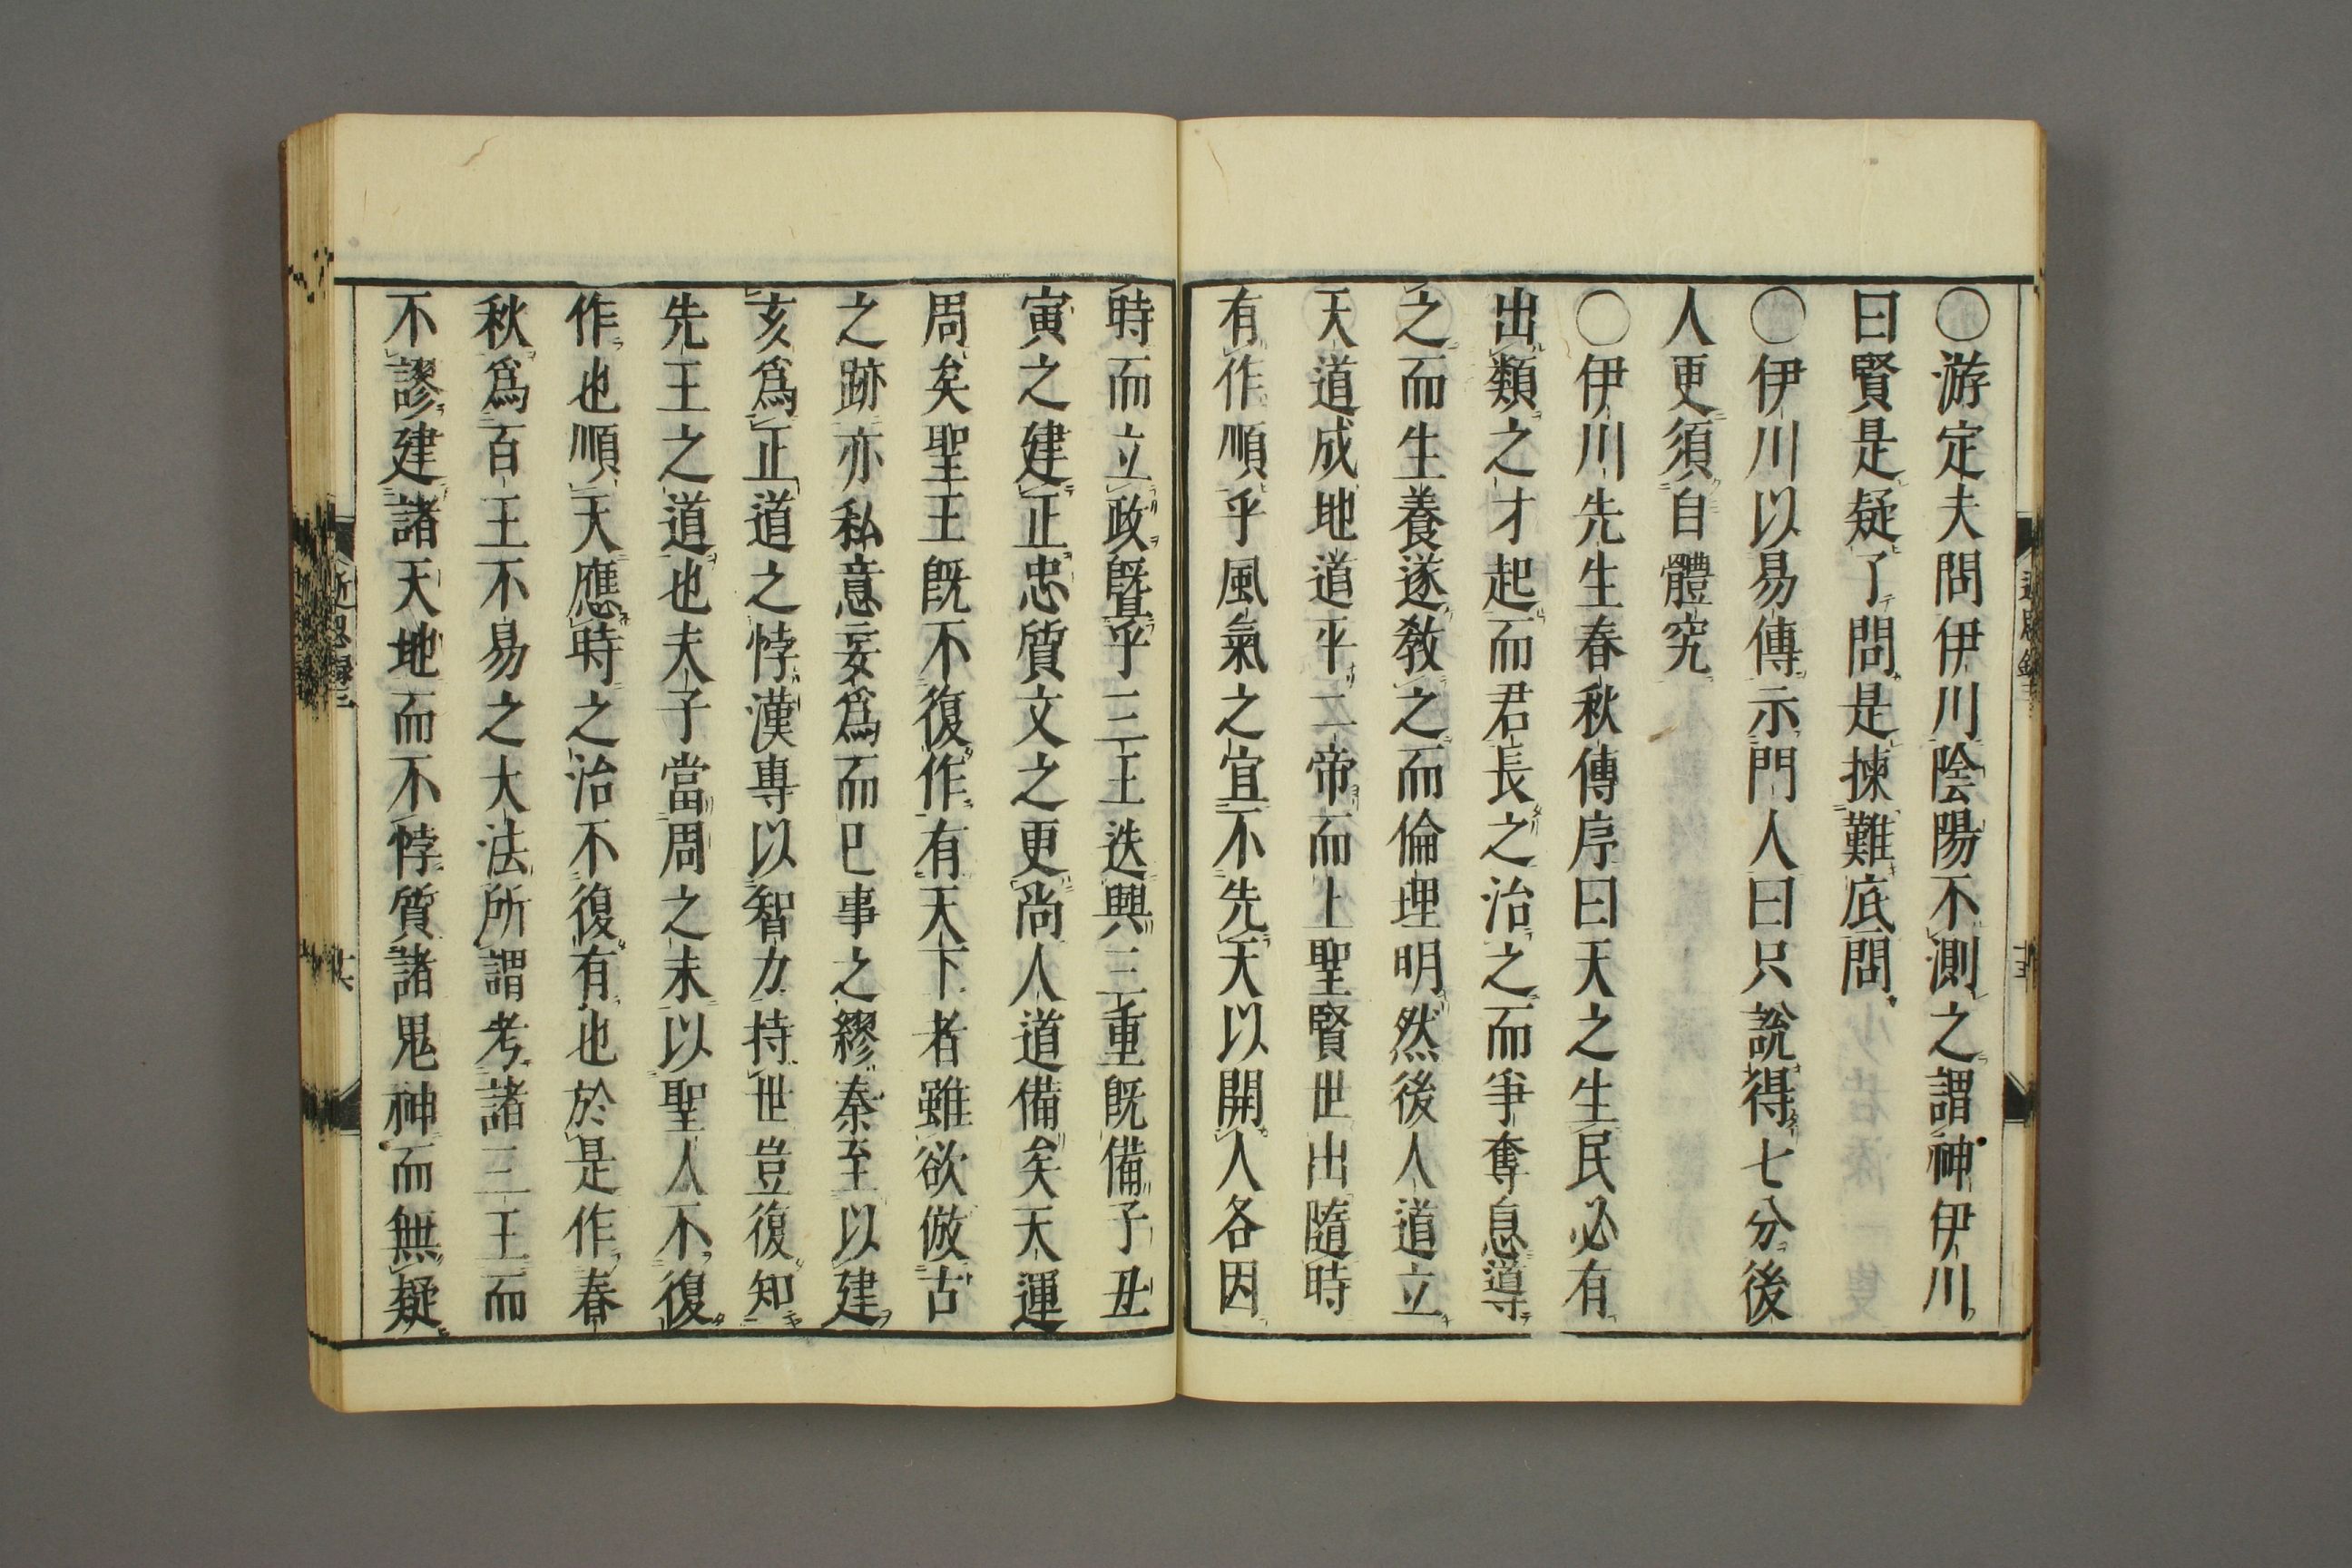 〇游定夫問伊川陰陽不測之謂神伊川
曰賢是疑了問是揀難底問
〇伊川以易傳示門人曰只說得七分後
人更須自體究
〇伊川先生春秋傳序曰天之生民必有
出類之才起而君長之治之而爭奪息導
之而生養遂教之而倫理明然後人道立
天道成地道平二帝而上聖賢世出隨時
有作順乎風氣之宜不先天以開人各因
時而立政曁乎三王迭興三重既備子丑
寅之建正忠質文之更尚人道備矣天運
周矣聖王既不復作有天下者雖欲倣古
之跡亦私意妄爲而已事之繆秦至以建
亥爲正道之悖漢專以智力持世豈復知
先王之道也夫子當周之末以聖人不復
作也順天應時之治不復有也於是作春
秋爲百王不易之大法所謂考諸三王而
不謬建諸天地而不悖質諸鬼神而無疑
近思錄三
十六